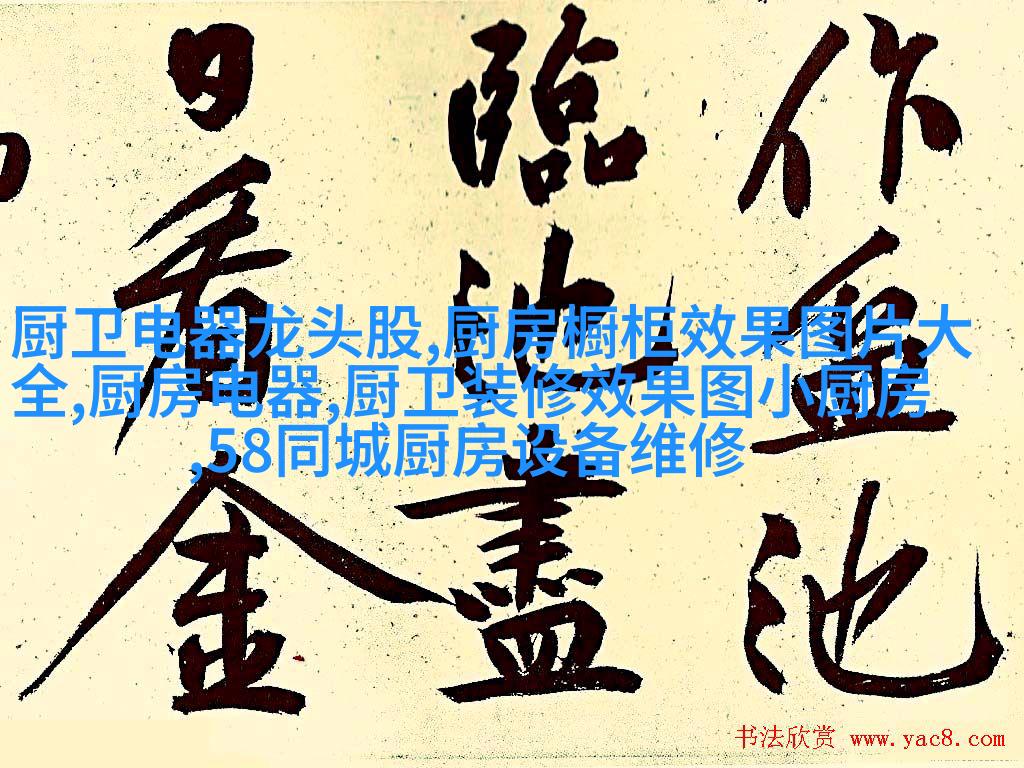 作盆池
臨池盡
日看金
厨卫电器龙头股,厨房橱柜效果图片大
全,厨房电器,厨卫装修效果图小厨房
,58同城厨房设备维修
书法欣赏 www.yac8.com